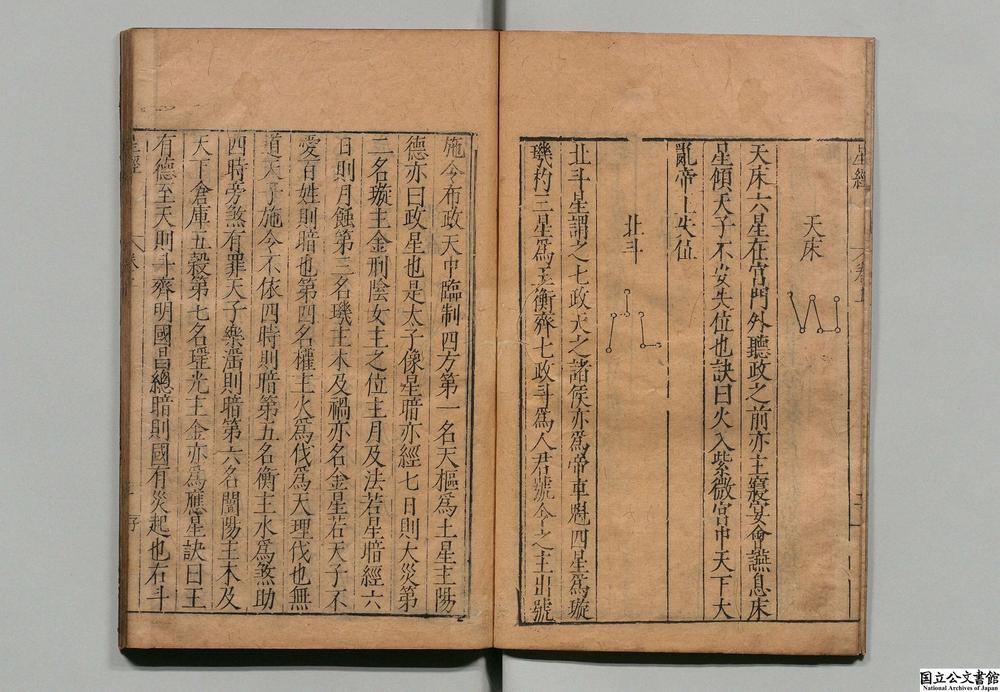 星經
卷上
天床
天床六星在宮門外聽政之前亦主寢宴會讌息床
星傾天子不安失位也訣曰火入紫微宮中天下大
亂帝王失位
北斗
北斗星謂之七政天之諸侯亦爲帝車魁四星爲璇
璣杓三星爲玉衡齊七政斗爲人君號令之主出號
施令布政天中臨制四方第一名天樞爲土星主陽
德亦曰政星也是太子像星暗亦經七日則大災第
二名璇主金刑陰女主之位主月及法若星暗經六
日則月蝕第三名璣主木及禍亦名金星若天子不
愛百姓則暗也第四名權主火爲伐爲天理伐也無
道天子施令不依四時則暗第五名衡主水爲煞助
四時旁煞有罪天子樂淫則暗第六名闓陽主木及
天下倉庫五穀第七名瑤光主金亦爲應星訣曰王
有德至天則斗齊明國昌總暗則國有災起也右斗
星經
国立公文書館
National Archives of Japan